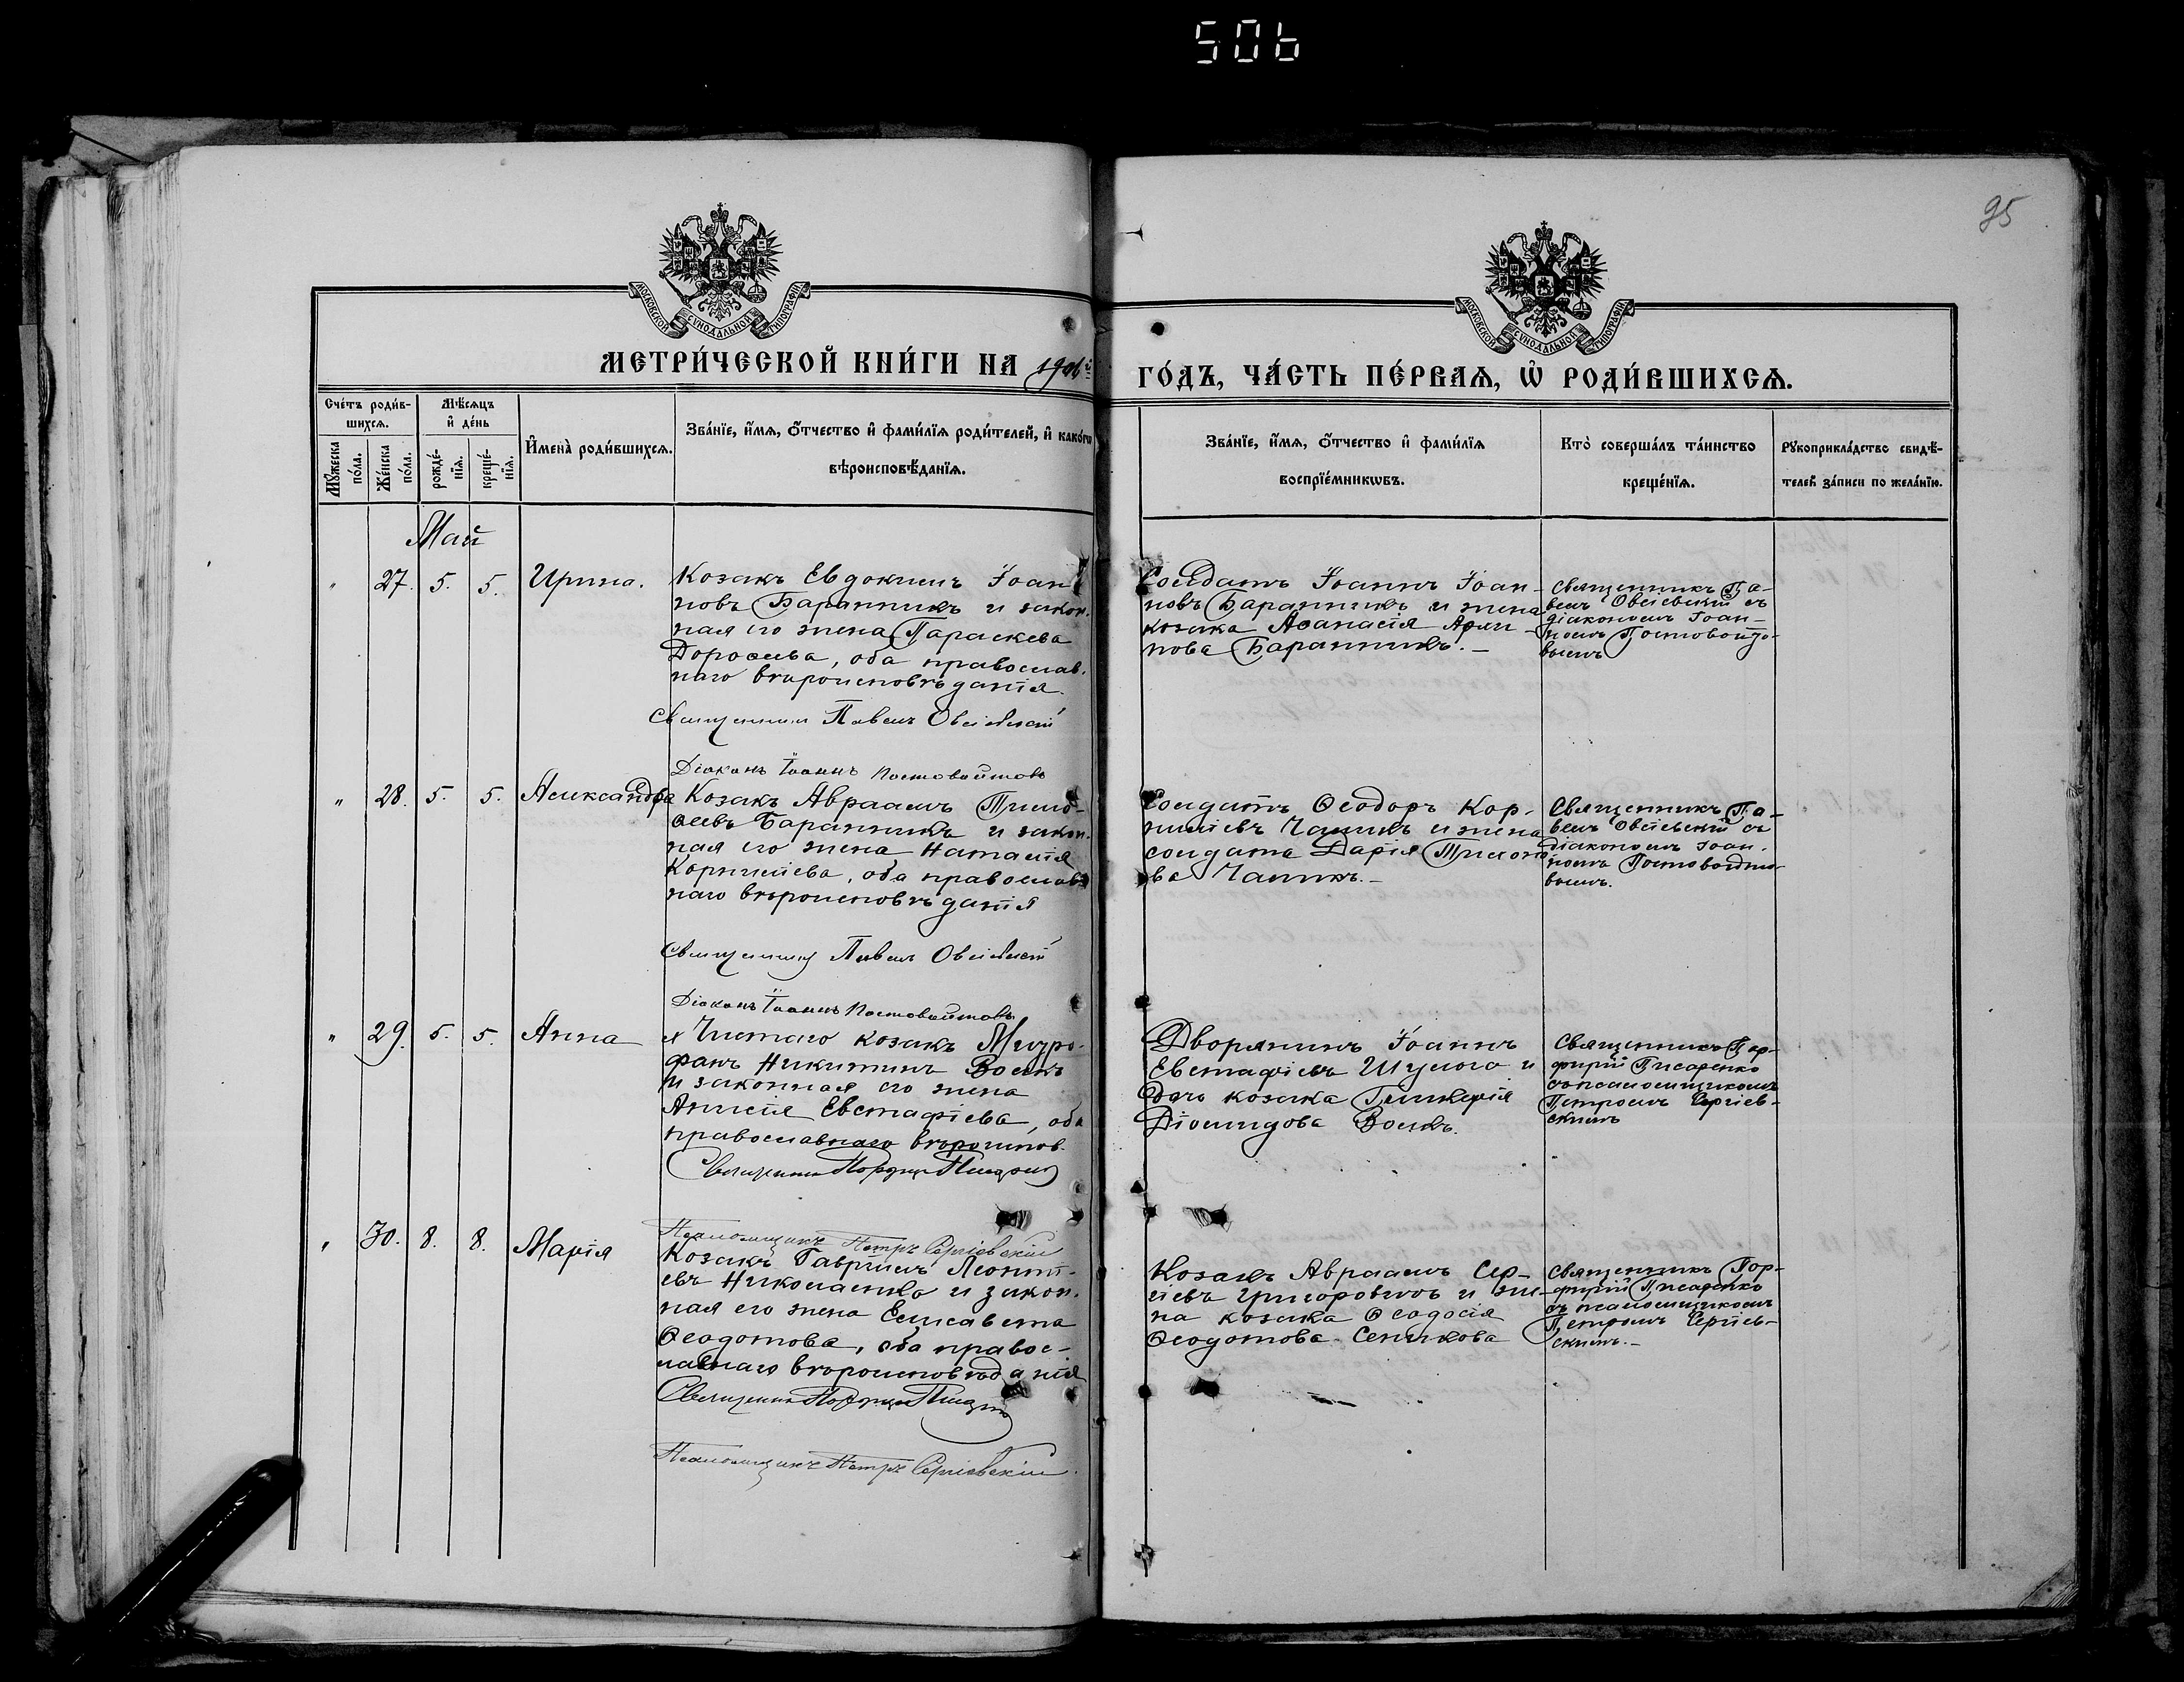 506
95
МОСКОВСКОЙ СѴНОДАЛЬНОЙ ТИПОГРАФІИ
МОСКОВСКОЙ СѴНОДАЛЬНОЙ ТИПОГРАФІИ
МЕТРИ́ЧЕСКОЙ КНИ́ГИ НА 1906й
ГО́ДЪ, ЧА́СТЬ ПЕ́РВАѦ, Ѡ҆ РОДИ́ВШИХСѦ.
Сче́тъ роди́в-
шихсѧ.
Мꙋ́жеска
по́ла.
Же́нска
по́ла.
Мѣ́сѧцъ
и҆ де́нь
рожде́-
нїѧ.
креще́-
нїѧ.
И҆мена̀ роди́вшихсѧ.
Зва́нїе, и҆́мѧ, ѻ҆́тчество и҆ фами́лїѧ роди́телей, и҆ како́гѡ
вѣроисповѣ́данїѧ.
Зва́нїе, и҆́мѧ, ѻ҆́тчество и҆ фами́лїѧ
воспрїе́мникѡвъ.
Кто̀ соверша́лъ та́инство
креще́нїѧ.
Рꙋкоприкла́дство свидѣ́-
телей за́писи по жела́нїю.
Май
" 27. 5. 5. Ирина.
Козакъ Евдокимъ Іоан-
новъ Баранникъ и закон.
ная его жена Параскева
Дорофеева, оба православ.
наго вѣроисповѣданія.
Священникъ Павелъ Овсіевскій
Діаконъ Іоаннъ Постовойтовъ
Солдатъ Іоаннъ Іоан-
новъ Баранникъ и жена
козака Аѳанасія
Баранникъ.-
Священникъ Па-
велъ Овсіевскій съ
діакономъ Іоан-
номъ Постовойто-
вымъ
" 28. 5. 5. Александра
Козакъ Авраамъ Тимо-
ѳеевъ Баранникъ и закон.
ная его жена Наталія
Корниліева, оба православ
наго вѣроисповѣданія
Священникъ Павелъ Овсіевскій
Діаконъ Іоаннъ Постовойтовъ
Солдатъ Ѳеодоръ Кор-
ниліевъ Чапикъ и жена
солдата Дарія Тихоно
ва Чапикъ.-
Священникъ Па-
велъ Овсіевскій съ
діакономъ Іоан.
номъ Постовойто-
вымъ.
" 29. 5. 5. Анна
х Чистаго козакъ Митро-
фанъ Никитинъ Вовкъ
и законная его жена
Анисія Евстафіева, оба
православнаго вѣроиспов.
Священникъ Порфирій Писаренко
Псаломщикъ Петръ Сергіевскій
Дворянинъ Іоаннъ
Евстафіевъ Шулога и
дочь козака Гликерія
Діомидова Вовкъ.
Священникъ Пор-
фирій Писаренко
съ псаломщикомъ
Петромъ Сергіев-
скимъ
" 30. 8. 8. Марія
Козакъ Гавріилъ Леонті-
евъ Николаенко и закон.
ная его жена Елисавета
Ѳеодотова, оба правос-
лавнаго вѣроисповѣданія
Священникъ Порфирій Писаренко
Псаломщикъ Петръ Сергіевскій.
Козакъ Авраамъ Сер-
гіевъ Григоровичъ и же-
на козака Ѳеодосія
Ѳеодотова Сенчкова
Священникъ Пор-
фирій Писаренко
съ псаломщикомъ
Петромъ Сергіев-
скимъ.-